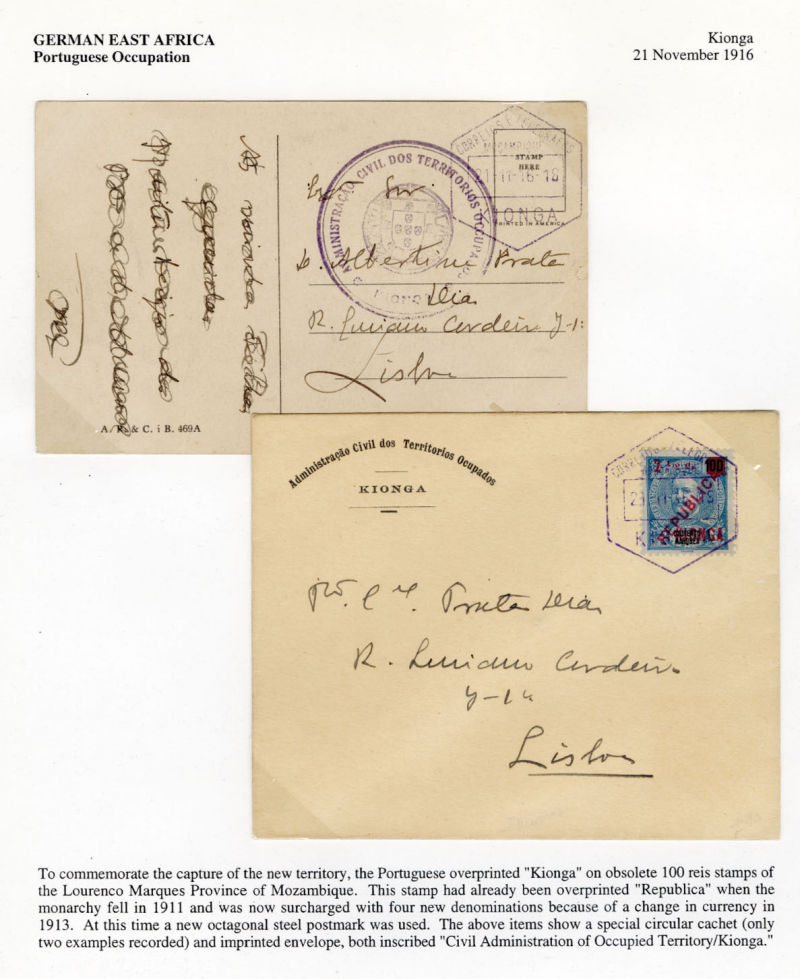 GERMAN EAST AFRICA
Portuguese Occupation
Kionga
21 November 1916
CORREIOS E TELEGRAFOS
MOÇAMBIQUE
STAMP
HERE
21-11-16-18
KIONGA
PRINTED IN AMERICA
ADMINISTRAÇÃO CIVIL DOS TERRITORIOS OCUPADOS
KIONGA
Albertina Prata
Dias
R. Luciano Cordeiro
Lisboa
A. R. & C. i B. 469A
Administração Civil dos Territorios Ocupados
KIONGA
100
REPUBLICA
KIONGA
Prata Dias
R. Luciano Cordeiro
Lisboa
To commemorate the capture of the new territory, the Portuguese overprinted "Kionga" on obsolete 100 reis stamps of
the Lourenco Marques Province of Mozambique. This stamp had already been overprinted "Republica" when the
monarchy fell in 1911 and was now surcharged with four new denominations because of a change in currency in
1913. At this time a new octagonal steel postmark was used. The above items show a special circular cachet (only
two examples recorded) and imprinted envelope, both inscribed "Civil Administration of Occupied Territory/Kionga."